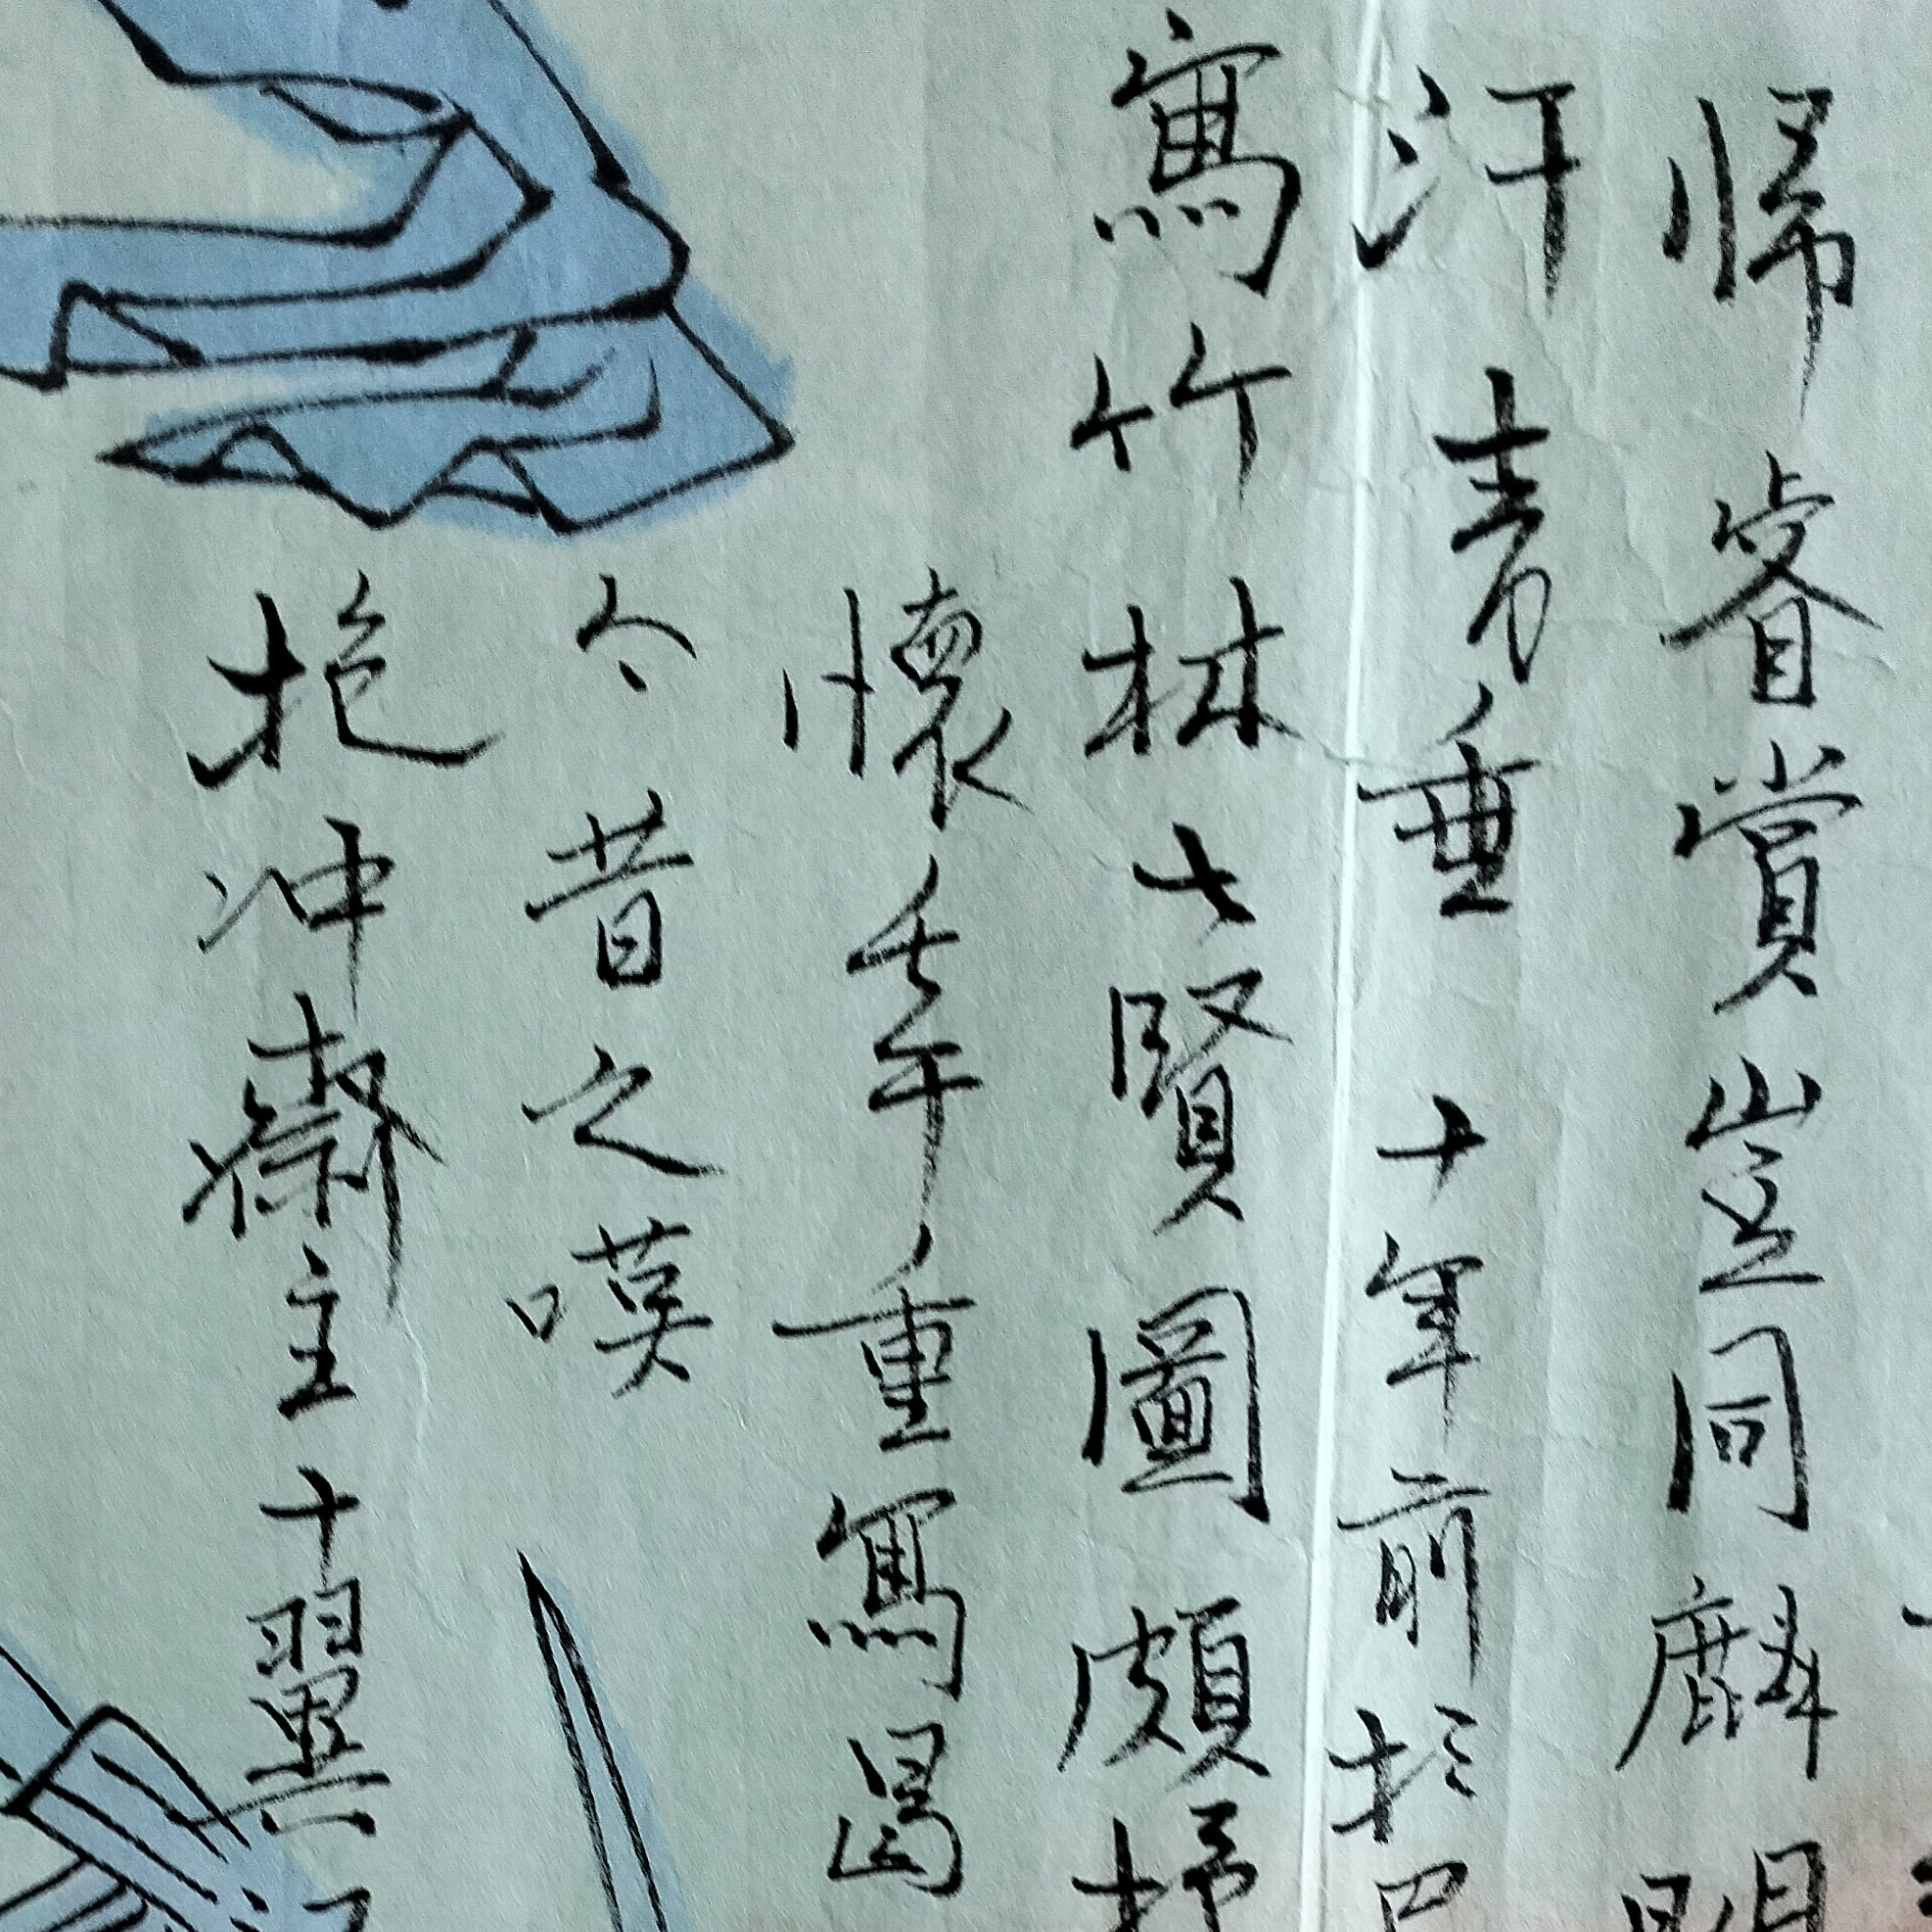 帰睿賞豈同麟
汗青垂 十年前於
寫竹林七賢圖頗抒
懷壬午重寫曷
今昔之嘆
抱冲齋主十翼